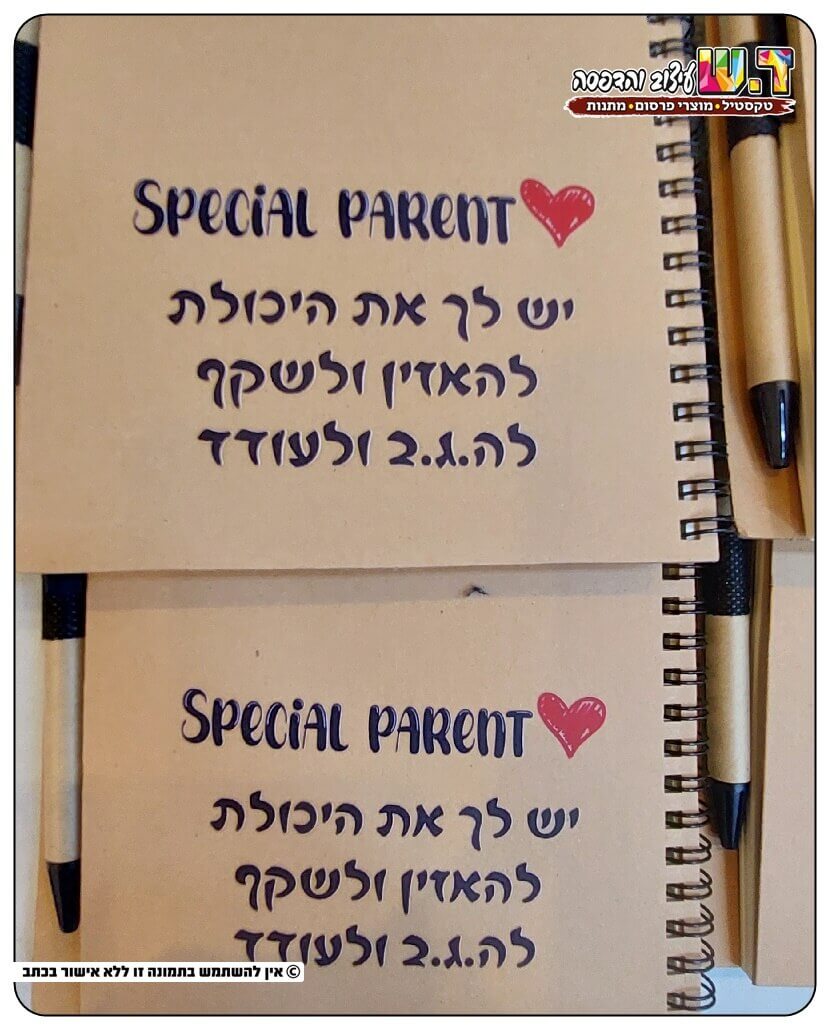 ד.ש עיצוב והדפסה
טקסטיל • מוצרי פרסום • מתנות
SPECIAL PARENT
יש לך את היכולת
להאזין ולשקף
לה.ג.ב ולעודד
SPECIAL PARENT
יש לך את היכולת
להאזין ולשקף
לה.ג.ב ולעודד
© אין להשתמש בתמונה זו ללא אישור בכתב